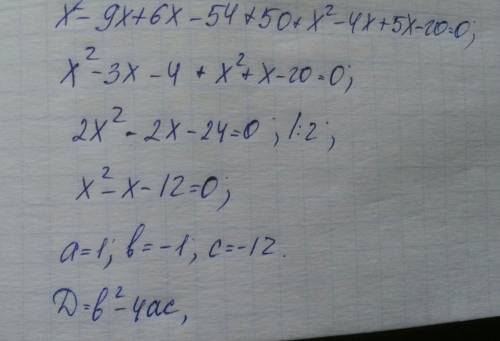 x² - 9x + 6x - 54 + 50 + x² - 4x + 5x - 20 = 0;
x² - 3x - 4 + x² + x - 20 = 0;
2x² - 2x - 24 = 0; |:2;
x² - x - 12 = 0;
a = 1; b = -1; c = -12.
Д = b² - 4ac,